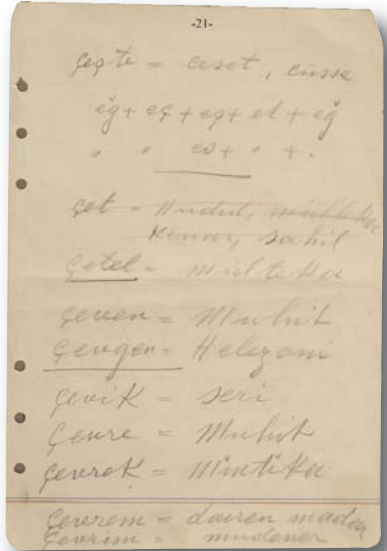 -21-
çeşte = ceset, cüsse
eğ + eç + eş + et + eğ
" " es + " + .
çet = Hudut, mülteka
Kenar, sahil
Çetel = mülteka
çeven = Muhit
Çevgen = Helezoni
çevik = seri
Çevre = Muhit
Çevrek = Mıntıka
Çevrem = dairen madar
Çevrim = müdevver